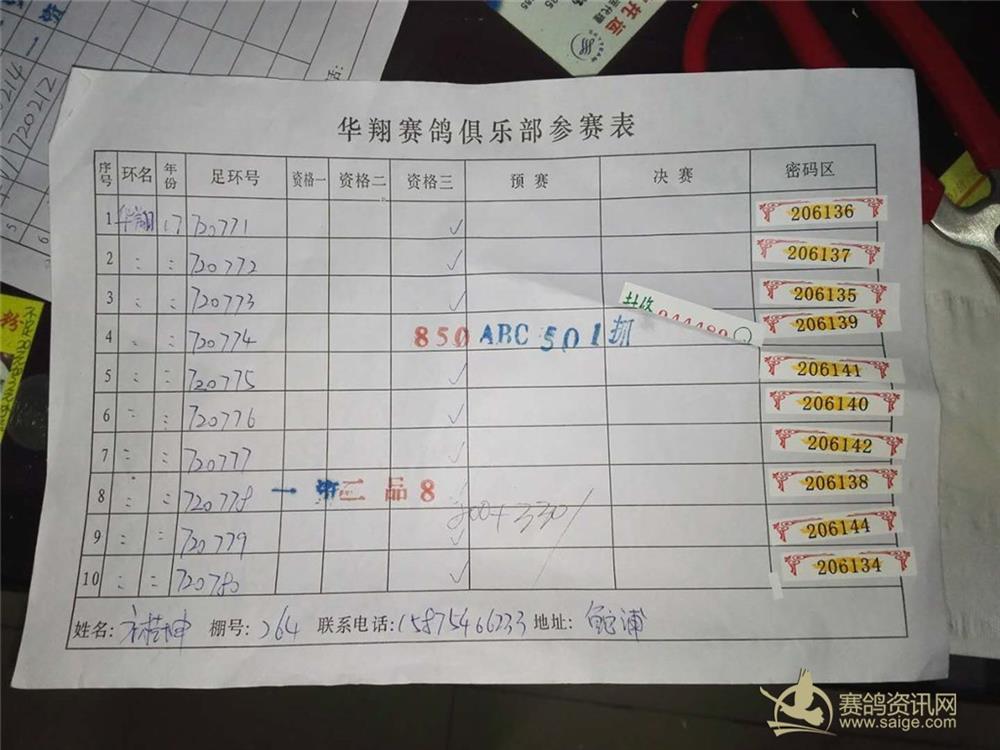 华翔赛鸽俱乐部参赛表
序号 环名 年份 足环号 资格一 资格二 资格三 预赛 决赛 密码区
1 华翔 17 720771 ✓ 206136
2 :: :: 720772 ✓ 206137
3 :: :: 720773 ✓ 206135
4 :: :: 720774 850 ABC 501 206139
5 :: :: 720775 ✓ 206141
6 :: :: 720776 ✓ 206140
7 :: :: 720777 ✓ 206142
8 :: :: 720778 一 二 品 8 206138
9 :: :: 720779 ✓ 206144
10 :: :: 720780 ✓ 206134
姓名: 棚号: 264 联系电话: 15875466233 地址: 鮀浦
720212
赛鸽资讯网
www.saige.com